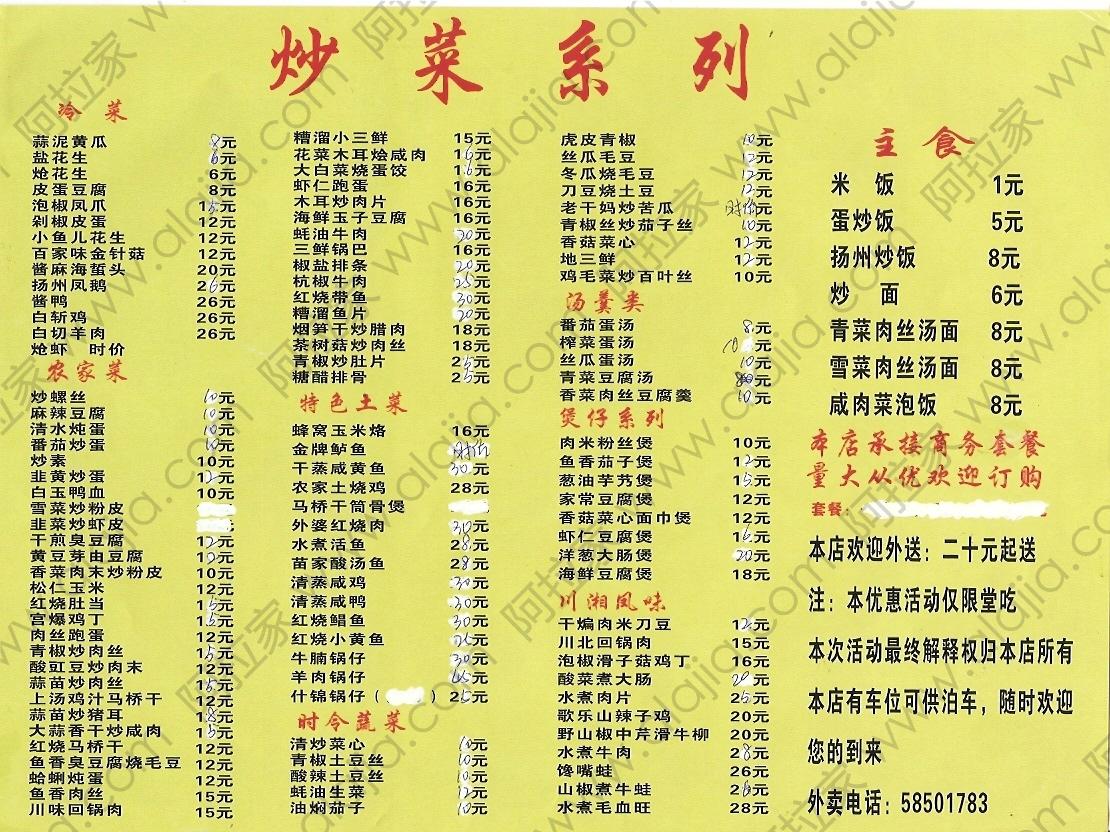 炒菜系列
冷菜
蒜泥黄瓜 8元
盐花生 6元
炝花生 6元
皮蛋豆腐 8元
泡椒凤爪 15元
剁椒皮蛋 12元
小鱼儿花生 12元
百家味金针菇 12元
酱麻海蜇头 20元
扬州凤鹅 26元
酱鸭 26元
白斩鸡 26元
白切羊肉 26元
炝虾 时价
农家菜
炒螺丝 10元
麻辣豆腐 10元
清水炖蛋 10元
番茄炒蛋 10元
炒素 10元
韭黄炒蛋 12元
白玉鸭血 10元
雪菜炒粉皮
韭菜炒虾皮 元
干煎臭豆腐 12元
黄豆芽由豆腐 12元
香菜肉末炒粉皮 10元
松仁玉米 12元
红烧肚当 15元
宫爆鸡丁 15元
肉丝跑蛋 12元
青椒炒肉丝 15元
酸豇豆炒肉末 12元
蒜苗炒肉丝 15元
上汤鸡汁马桥干 12元
蒜苗炒猪耳 18元
大蒜香干炒咸肉 15元
红烧马桥干 12元
鱼香臭豆腐烧毛豆 12元
蛤蜊炖蛋 12元
鱼香肉丝 15元
川味回锅肉 15元
糟溜小三鲜 15元
花菜木耳烩咸肉 16元
大白菜烧蛋饺 16元
虾仁跑蛋 16元
木耳炒肉片 16元
海鲜玉子豆腐 16元
蚝油牛肉 20元
三鲜锅巴 16元
椒盐排条 20元
杭椒牛肉 25元
红烧带鱼 30元
糟溜鱼片 20元
烟笋干炒腊肉 18元
茶树菇炒肉丝 18元
青椒炒肚片 25元
糖醋排骨 25元
特色土菜
蜂窝玉米烙 16元
金牌鲈鱼 时价
干蒸咸黄鱼 30元
农家土烧鸡 28元
马桥干筒骨煲
外婆红烧肉 30元
水煮活鱼 28元
苗家酸汤鱼 28元
清蒸咸鸡 30元
清蒸咸鸭 30元
红烧鲳鱼 30元
红烧小黄鱼 25元
牛腩锅仔 30元
羊肉锅仔 45元
什锦锅仔（ ） 25元
时令蔬菜
清炒菜心 10元
青椒土豆丝 10元
酸辣土豆丝 10元
蚝油生菜 12元
油焖茄子 10元
虎皮青椒 10元
丝瓜毛豆 12元
冬瓜烧毛豆 12元
刀豆烧土豆 12元
老干妈炒苦瓜 时价元
青椒丝炒茄子丝 10元
香菇菜心 12元
地三鲜 12元
鸡毛菜炒百叶丝 10元
汤羹类
番茄蛋汤 8元
榨菜蛋汤 10元
丝瓜蛋汤 10元
青菜豆腐汤 元
香菜肉丝豆腐羹 10元
煲仔系列
肉米粉丝煲 10元
鱼香茄子煲 12元
葱油芋艿煲 15元
家常豆腐煲 12元
香菇菜心面巾煲 12元
虾仁豆腐煲 16元
洋葱大肠煲 20元
海鲜豆腐煲 18元
川湘风味
干煸肉米刀豆 12元
川北回锅肉 15元
泡椒滑子菇鸡丁 16元
酸菜煮大肠 20元
水煮肉片 25元
歌乐山辣子鸡 20元
野山椒中芹滑牛柳 20元
水煮牛肉 28元
馋嘴蛙 26元
山椒煮牛蛙 26元
水煮毛血旺 28元
主食
米饭 1元
蛋炒饭 5元
扬州炒饭 8元
炒面 6元
青菜肉丝汤面 8元
雪菜肉丝汤面 8元
咸肉菜泡饭 8元
本店承接商务套餐
量大从优欢迎订购
套餐：
本店欢迎外送：二十元起送
注：本优惠活动仅限堂吃
本次活动最终解释权归本店所有
本店有车位可供泊车，随时欢迎
您的到来
外卖电话：58501783
阿拉家 www.alajia.com